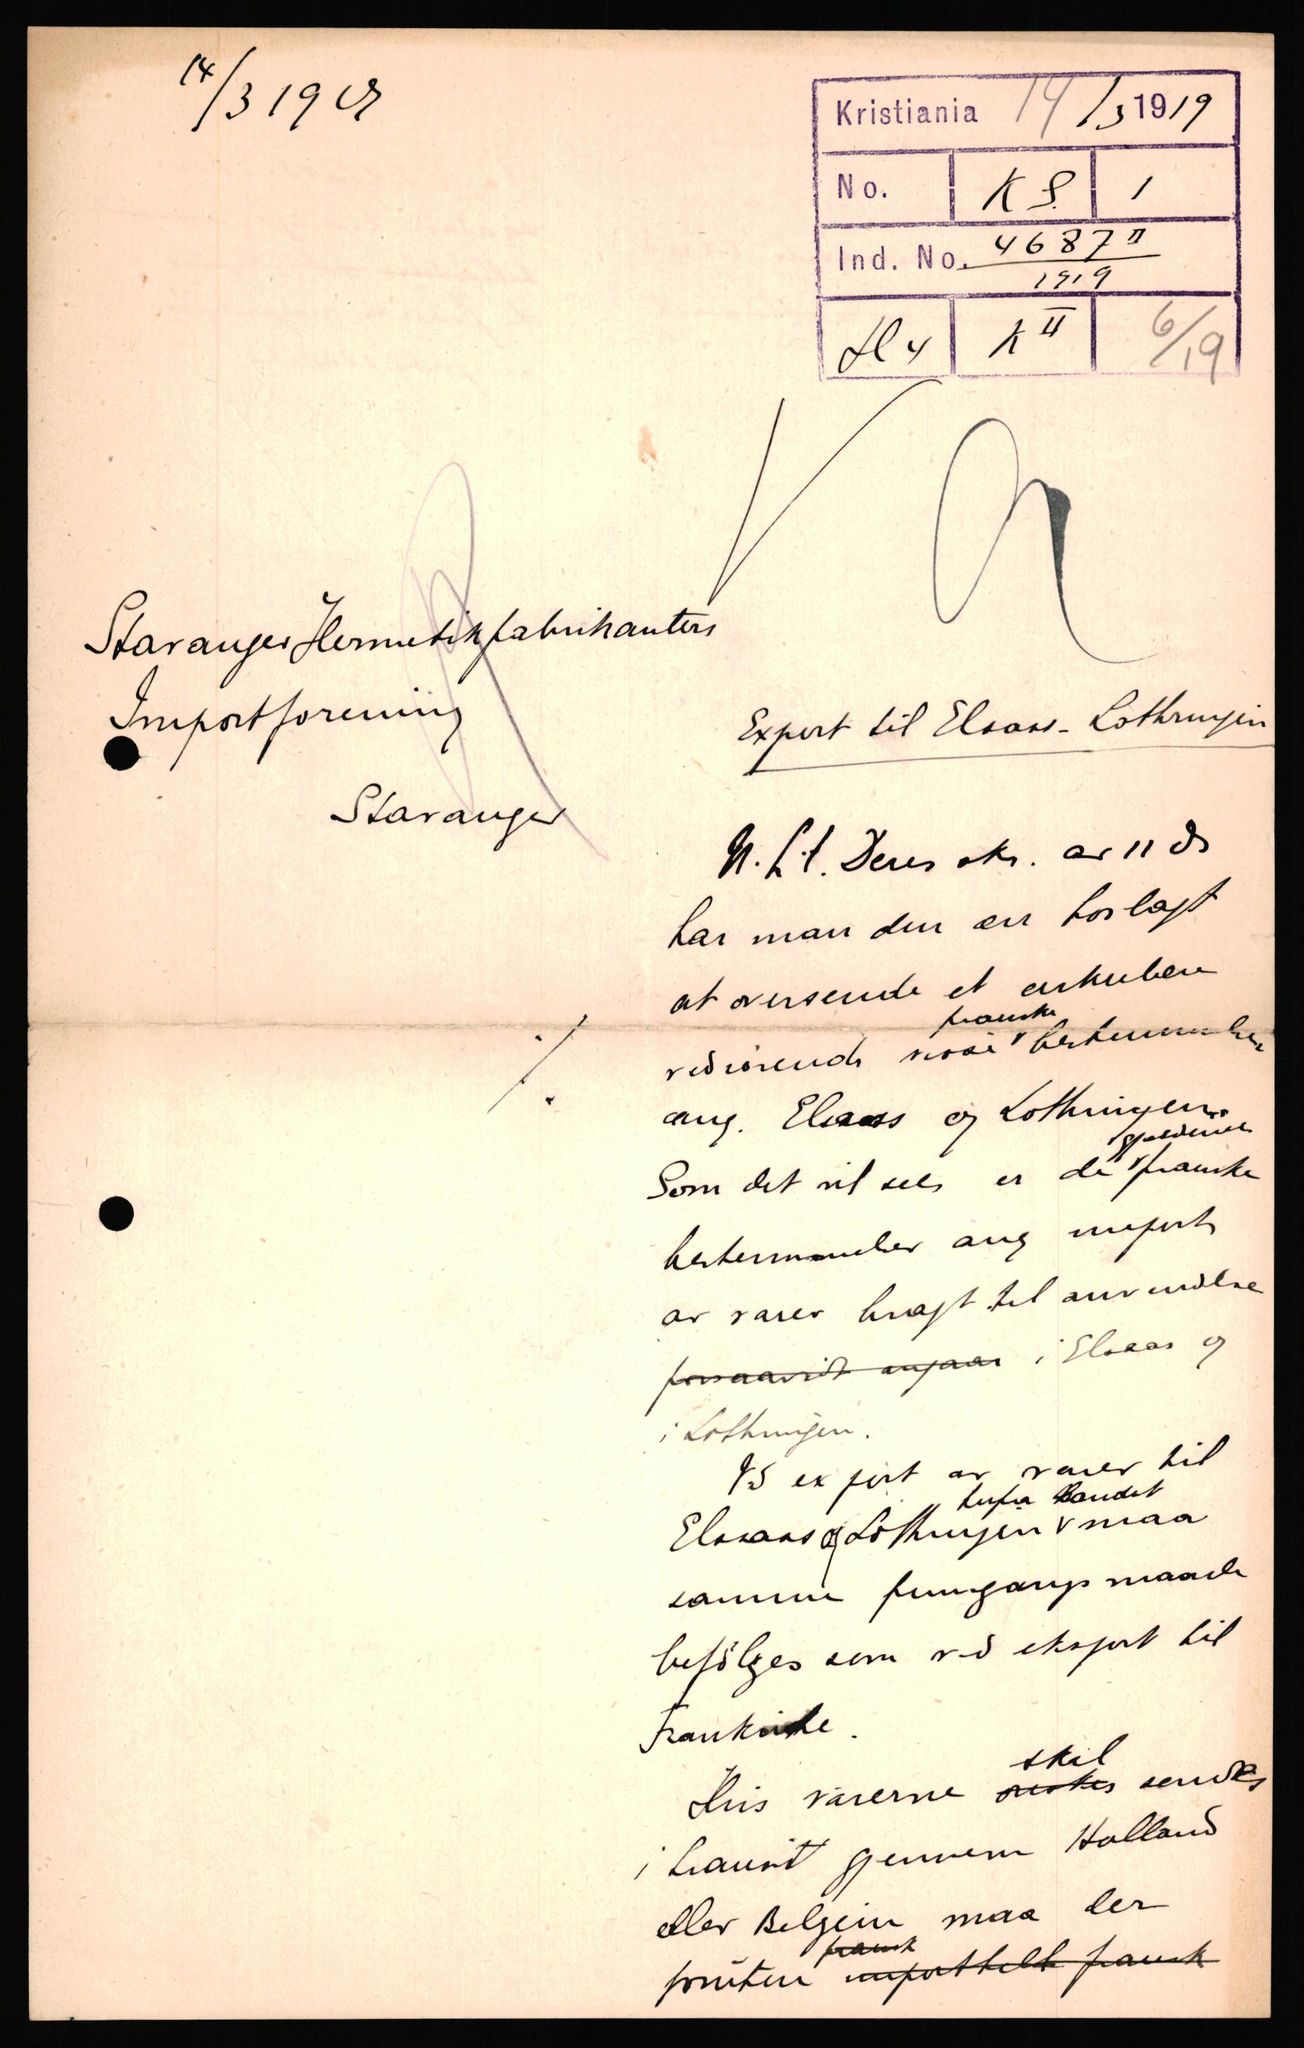 14/3 19
Kristiania 14/3 1919
No. K S. 1
Ind. No. 4687 II
1919
H 4 K II 6/19
Stavanger Hermetikfabrikanters
Importforening
Stavanger
Export til Elsass-Lothringen
N. f. t. Deres skr. av 11 ds
har man den ære hoslagt
at oversende et cirkulære
franske
vedrørende visse bestemmelser
ang. Elsass og Lothringen.
gjældende
Som det vil sees er de franske
bestemmelser ang import
av varer bragt til anvendelse
forsaavidt angaar i Elsass og
i Lothringen.
Ved export av varer til
herfra landet
Elsass og Lothringen maa
samme fremgangsmaade
befölges som ved eksport til
Frankrike.
skal
Hvis varerne ønskes sendes
i transit gjennem Holland
eller Belgien maa der
fransk
foruten importtill. fransk